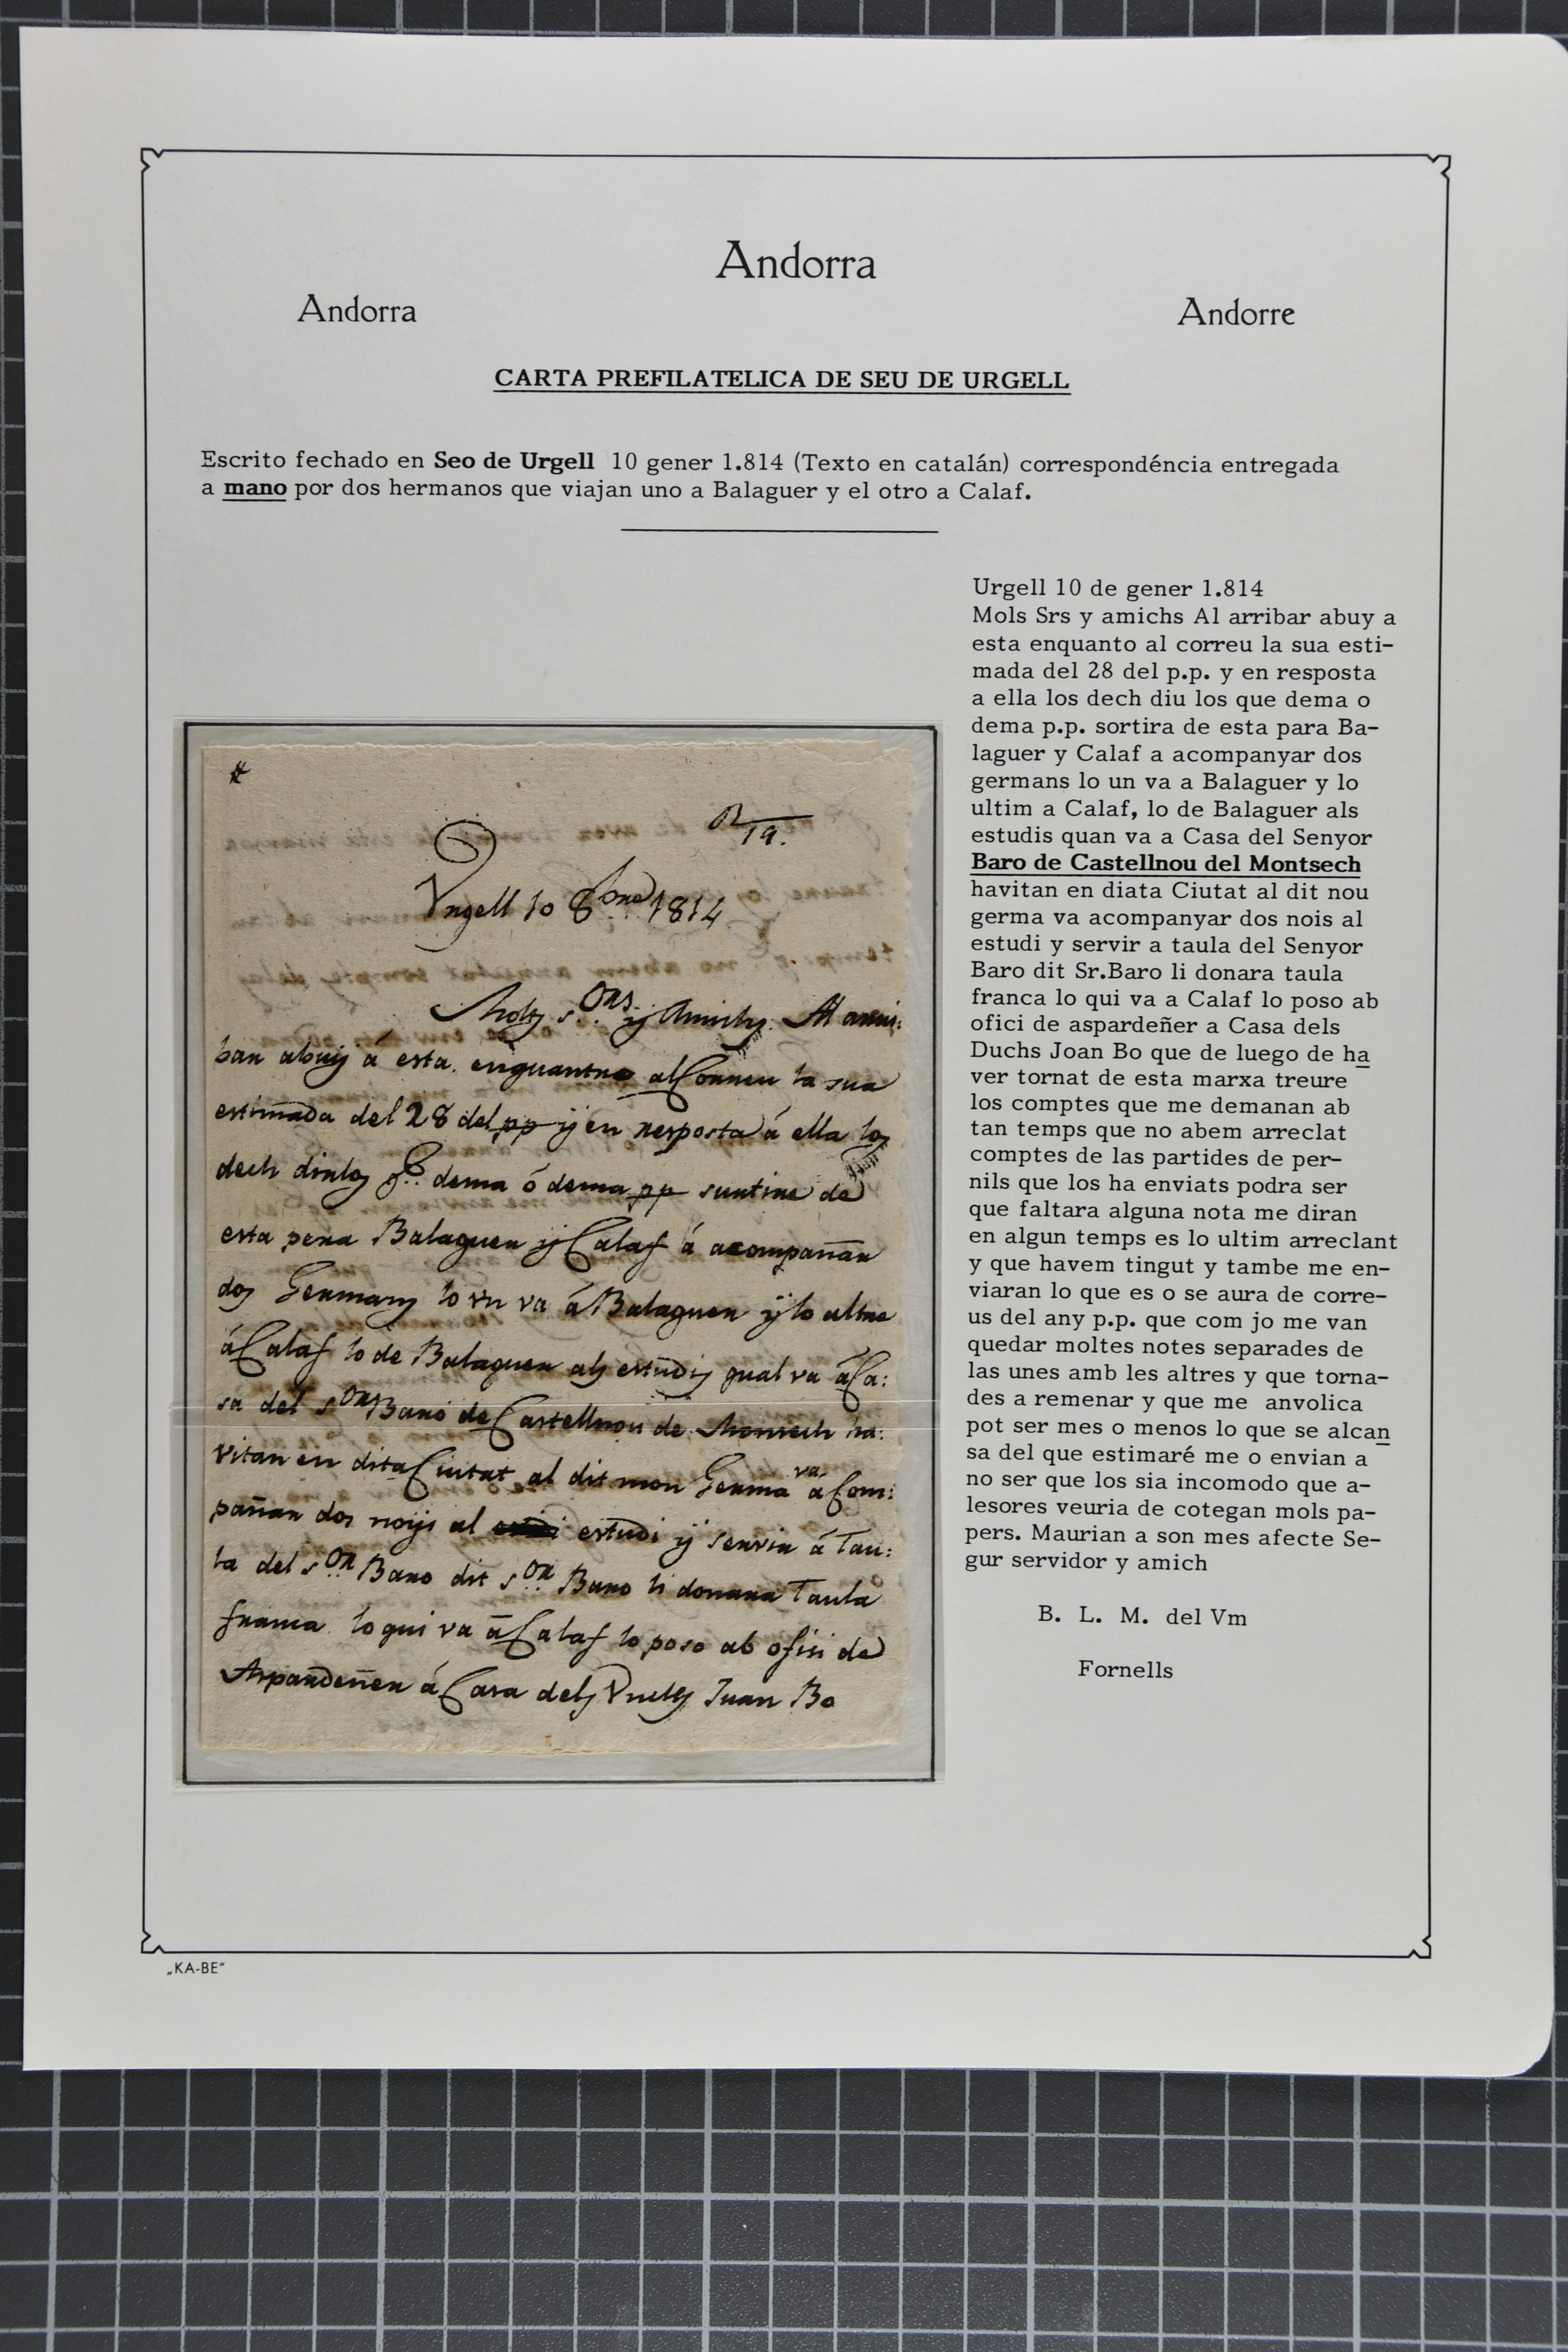 Andorra
Andorra
Andorre
CARTA PREFILATELICA DE SEU DE URGELL
Escrito fechado en Seo de Urgell 10 gener 1.814 (Texto en catalán) correspondéncia entregada
a mano por dos hermanos que viajan uno a Balaguer y el otro a Calaf.
R/19.
Urgell 10 8bre 1814
Molts s.ors y Amichs. Al arri:
bar abuy á esta, enquantre al Correu la sua
estimada del 28 del pp y en resposta á ella los
dech dirlos q.e dema ó dema pp surtire de
esta pera Balaguer y Calaf á acompañar
dos Germans lo un va á Balaguer y lo altre
á Calaf lo de Balaguer als estudis qual va á Ca:
sa del s.or Baró de Castellnou de Monsech ha:
vitan en dita Ciutat al dit mon Germa va á Com:
pañar dos noys al estudi y servir á Tau:
la del s.or Baro dit s.or Baro li donara Taula
franca lo qui va á Calaf lo poso ab ofisi de
Aspardeñer á Casa dels Juan Bo
Urgell 10 de gener 1.814
Mols Srs y amichs Al arribar abuy a
esta enquanto al correu la sua esti-
mada del 28 del p.p. y en resposta
a ella los dech diu los que dema o
dema p.p. sortira de esta para Ba-
laguer y Calaf a acompanyar dos
germans lo un va a Balaguer y lo
ultim a Calaf, lo de Balaguer als
estudis quan va a Casa del Senyor
Baro de Castellnou del Montsech
havitan en diata Ciutat al dit nou
germa va acompanyar dos nois al
estudi y servir a taula del Senyor
Baro dit Sr.Baro li donara taula
franca lo qui va a Calaf lo poso ab
ofici de aspardeñer a Casa dels
Duchs Joan Bo que de luego de ha
ver tornat de esta marxa treure
los comptes que me demanan ab
tan temps que no abem arreclat
comptes de las partides de per-
nils que los ha enviats podra ser
que faltara alguna nota me diran
en algun temps es lo ultim arreclant
y que havem tingut y tambe me en-
viaran lo que es o se aura de corre-
us del any p.p. que com jo me van
quedar moltes notes separades de
las unes amb les altres y que torna-
des a remenar y que me anvolica
pot ser mes o menos lo que se alcan
sa del que estimaré me o envian a
no ser que los sia incomodo que a-
lesores veuria de cotegan mols pa-
pers. Maurian a son mes afecte Se-
gur servidor y amich
B. L. M. del Vm
Fornells
„KA-BE“